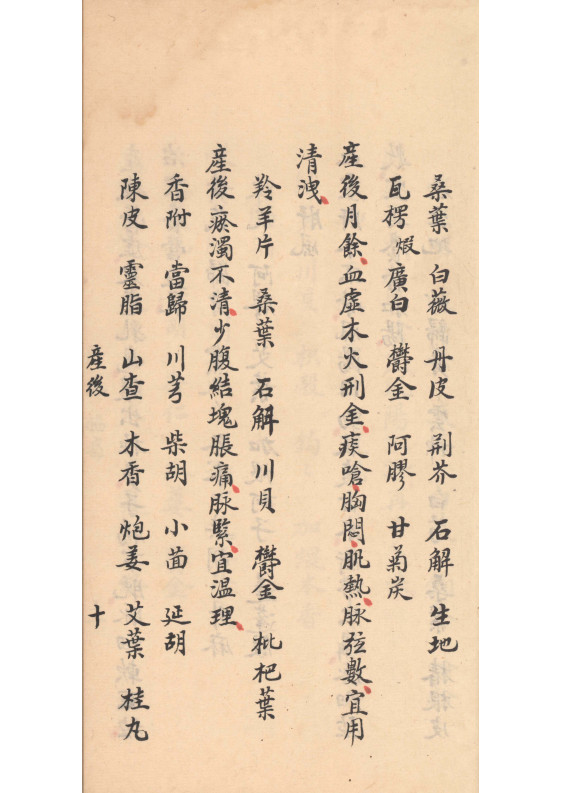 桑葉 白薇 丹皮 荆芥 石斛 生地
瓦楞煆 廣白 欝金 阿膠 甘菊炭
産後月餘血虚木火刑金痰嗆胸悶肌熱脉弦數宜用
清洩
羚羊片 桑葉 石斛 川貝 欝金 枇杷葉
産後瘀濁不清少腹結塊脹痛脉緊宜温理
香附 當歸 川芎 柴胡 小茴 延胡
陳皮 靈脂 山查 木香 炮姜 艾葉 桂丸
産後 十